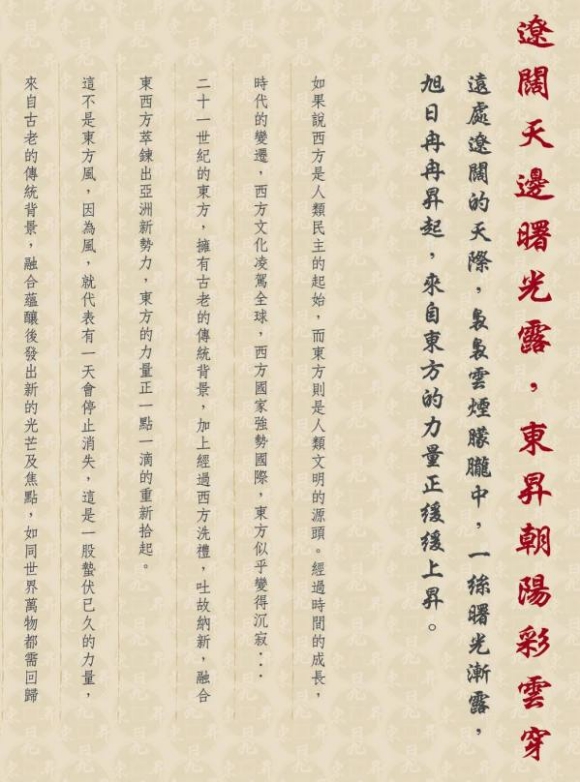 遼闊天邊曙光露，東昇朝陽彩雲穿
遠處遼闊的天際，裊裊雲煙朦朧中，一絲曙光漸露，
旭日冉冉昇起，來自東方的力量正緩緩上昇。
如果說西方是人類民主的起始，而東方則是人類文明的源頭。經過時間的成長，
時代的變遷，西方文化凌駕全球，西方國家強勢國際，東方似乎變得沉寂...
二十一世紀的東方，擁有古老的傳統背景，加上經過西方洗禮，吐故納新，融合
東西方萃鍊出亞洲新勢力，東方的力量正一點一滴的重新拾起。
這不是東方風，因為風，就代表有一天會停止消失，這是一股蟄伏已久的力量，
來自古老的傳統背景，融合蘊釀後發出新的光芒及焦點，如同世界萬物都需回歸